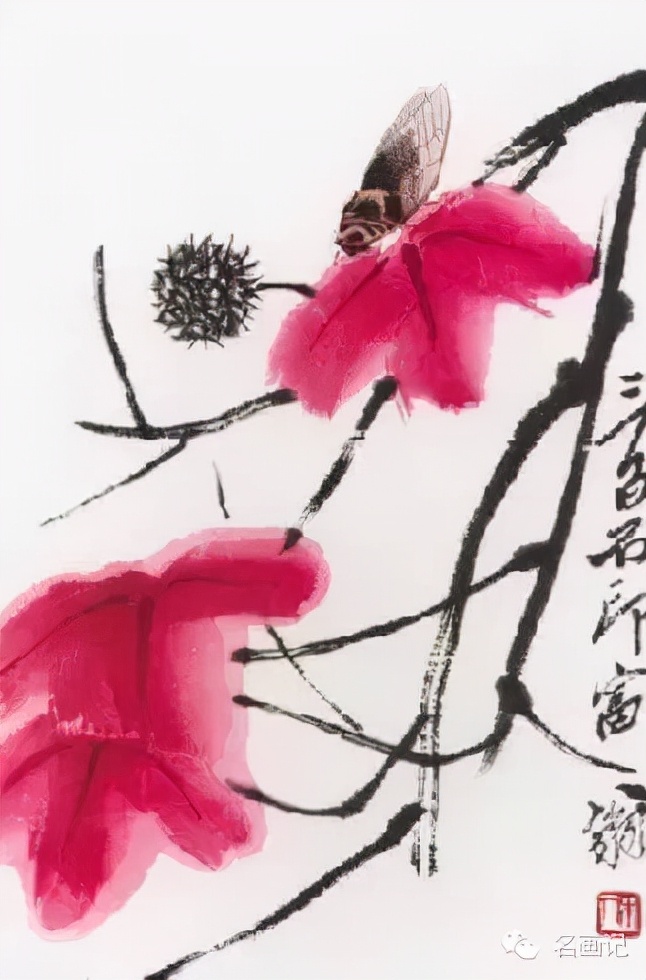 三百石印富翁
名画记